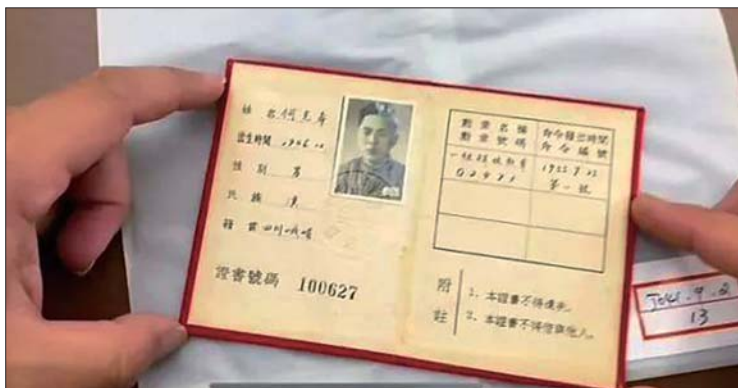 姓 名 何克希
出生時間 1906.
性 别 男
民 族 漢
籍 貫 四川峨嵋
證書號碼 100627
勳章名稱
勳章號碼
命令發出時間
命令編號
一級
1955 9
第一號
附註
1、本證書不得遺失。
2、本證書不得借與他人。
13